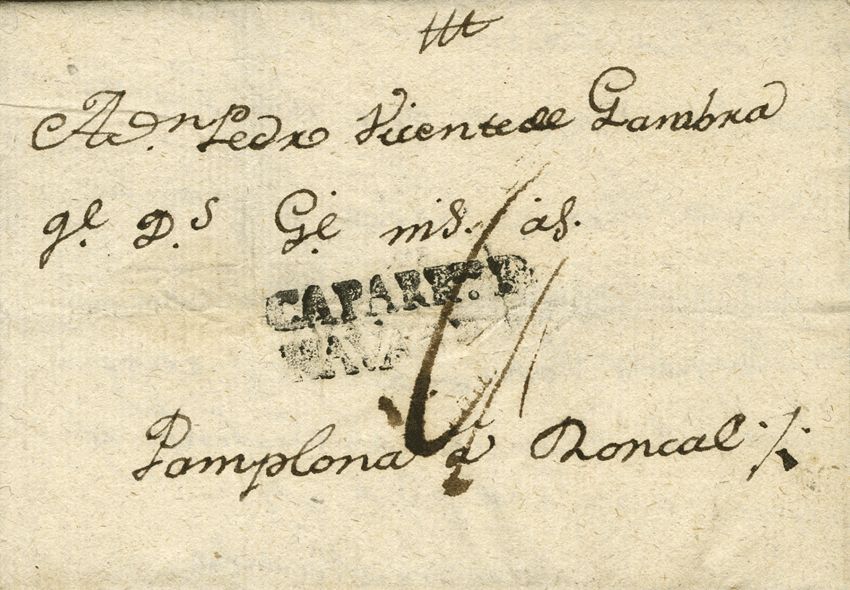 A Dn Pedro Vicente de Gambra
qe. Ds Ge. ms. as.
CAPARR
NAVA
Pamplona a Roncal